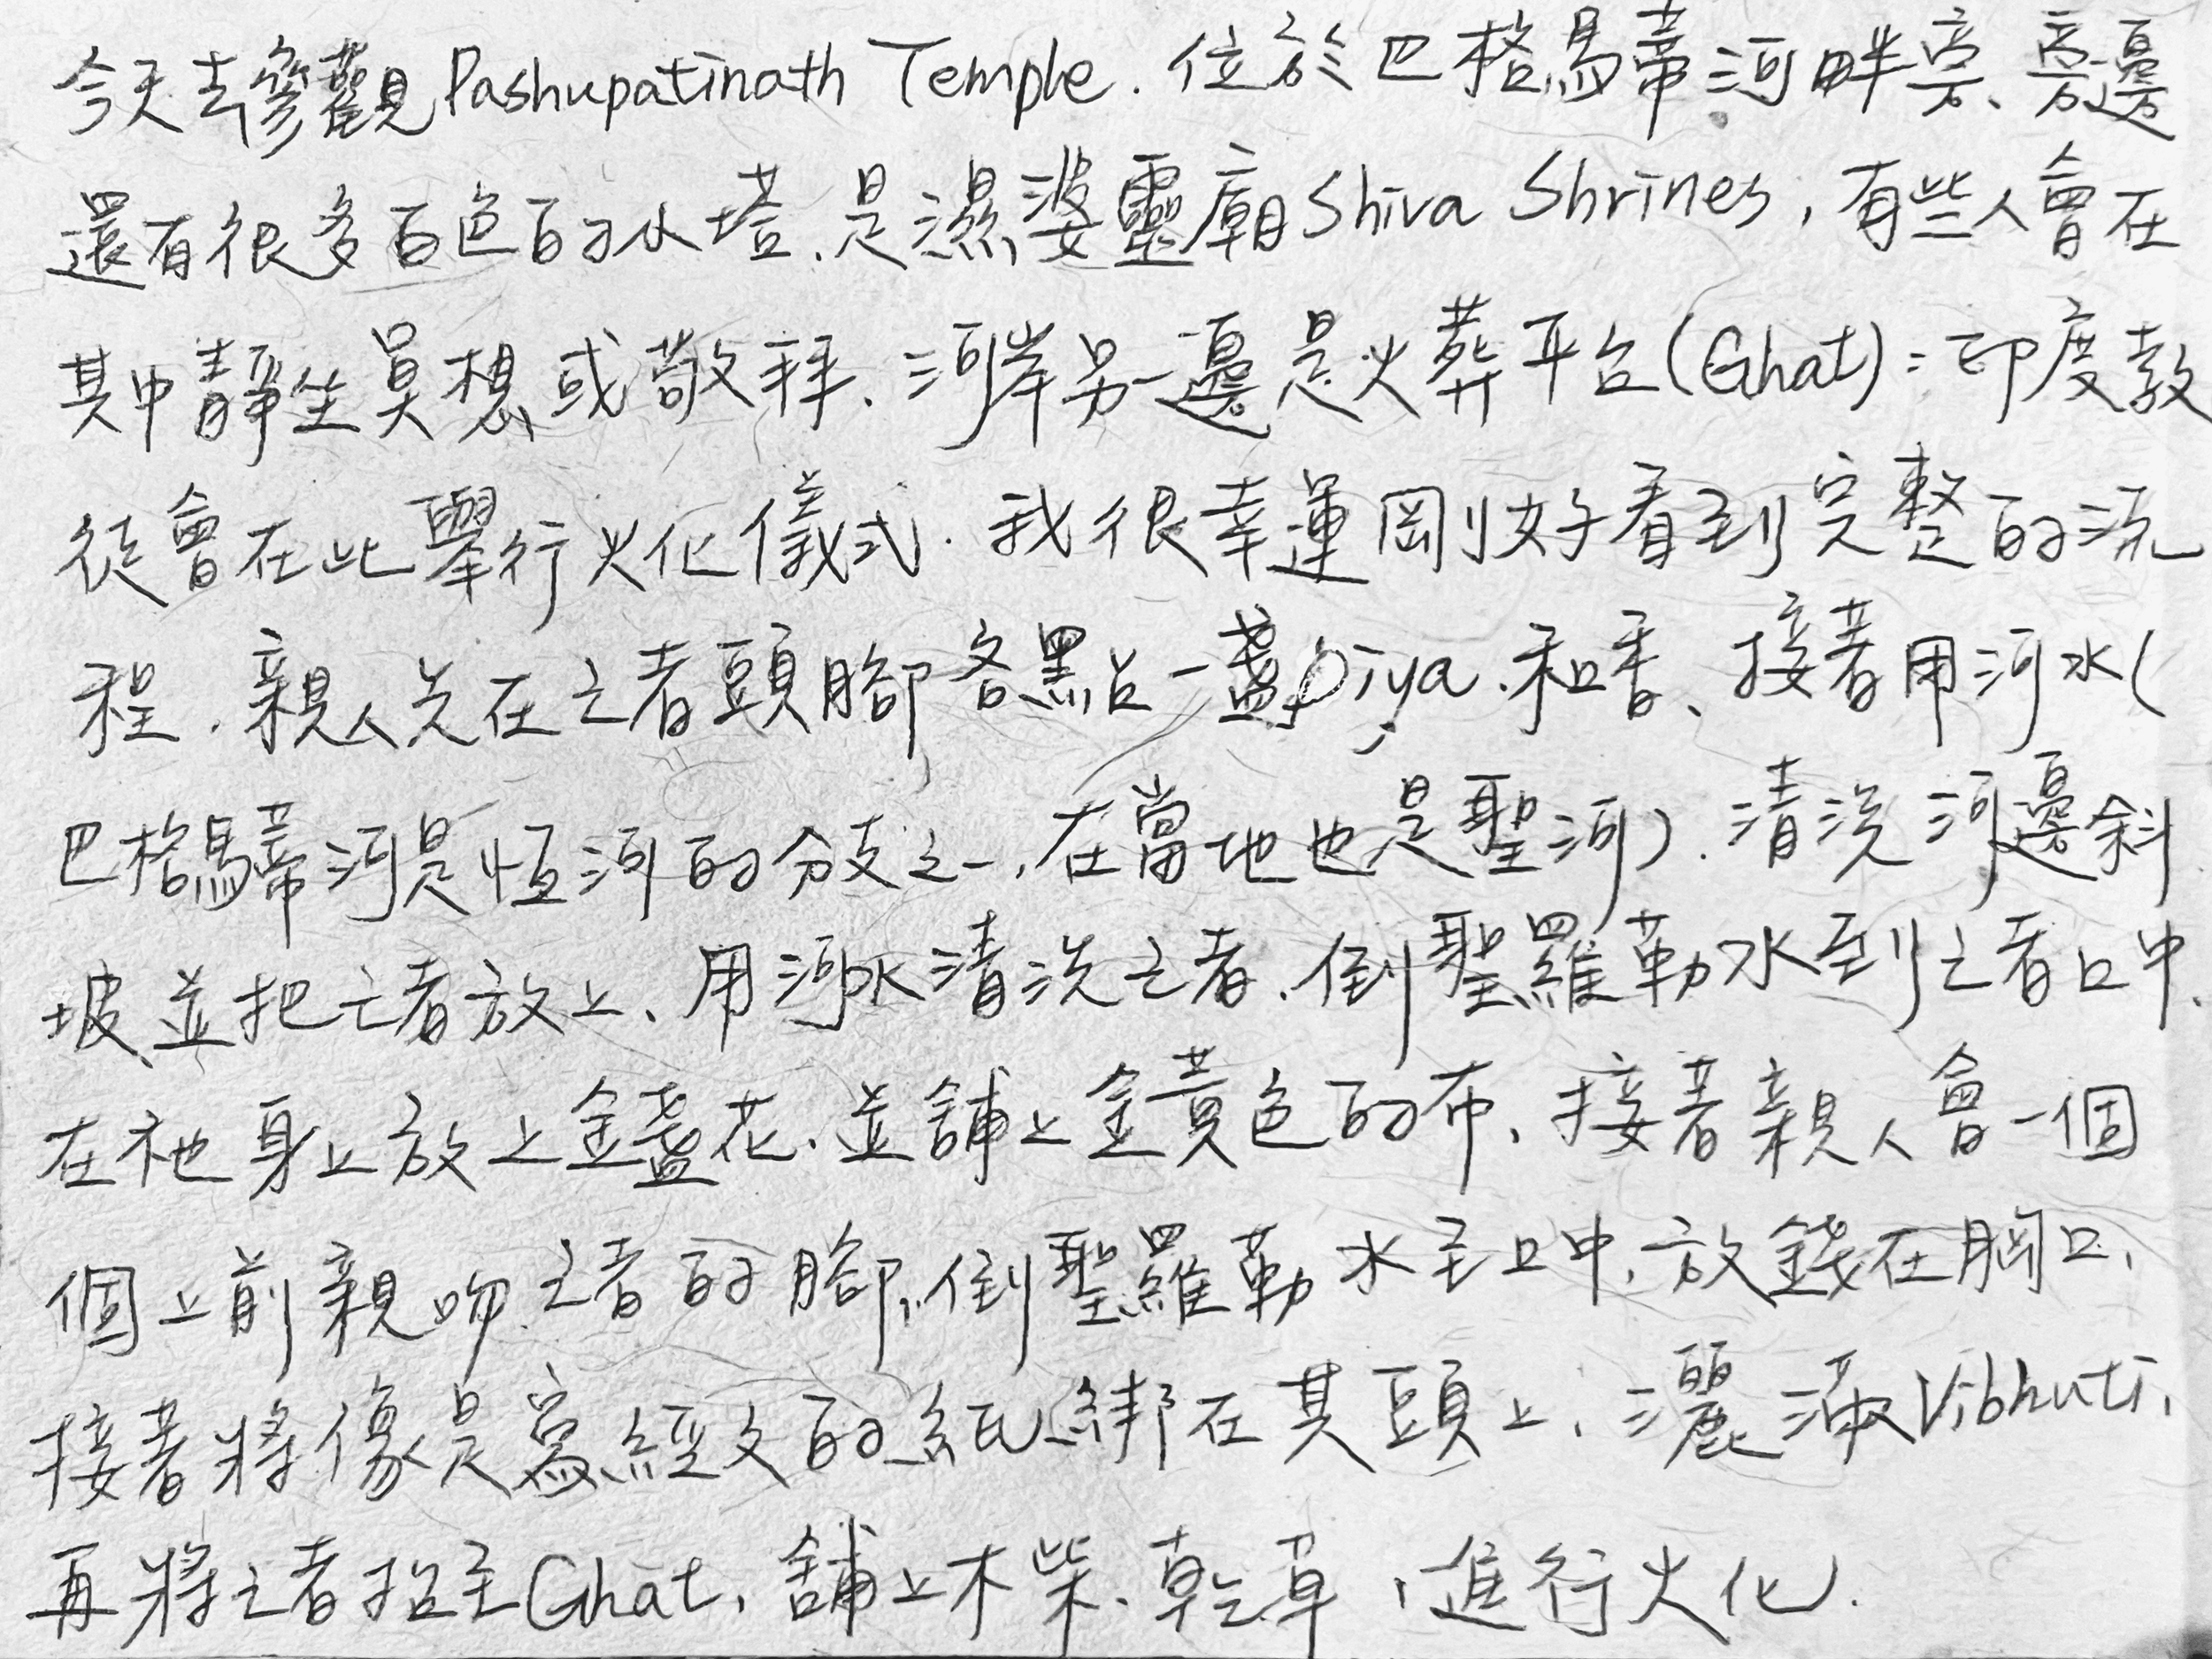 今天去參觀Pashupatinath Temple. 位於巴格馬蒂河畔旁、旁邊
還有很多白色的小塔、是濕婆靈廟Shiva Shrines, 有些人會在
其中靜坐冥想或敬拜、河岸另一邊是火葬平台(Ghat): 印度教
徒會在此舉行火化儀式. 我很幸運剛好看到完整的流
程. 親人先在亡者頭腳各點一盞Diya.和香、接著用河水(
巴格馬蒂河是恆河的分支之一, 在當地也是聖河). 清洗河邊斜
坡、並把亡者放上、用河水清洗亡者、倒聖羅勒水到亡者口中、
在祂身上放上金盞花、並舖上金黃色的布、接著親人會一個
個上前親吻亡者的腳、倒聖羅勒水至口中、放錢在胸口、
接著將像是寫經文的紙綁在其頭上、灑淑Vibhuti、
再將亡者抬至Ghat、舖上木柴、乾草、進行火化.